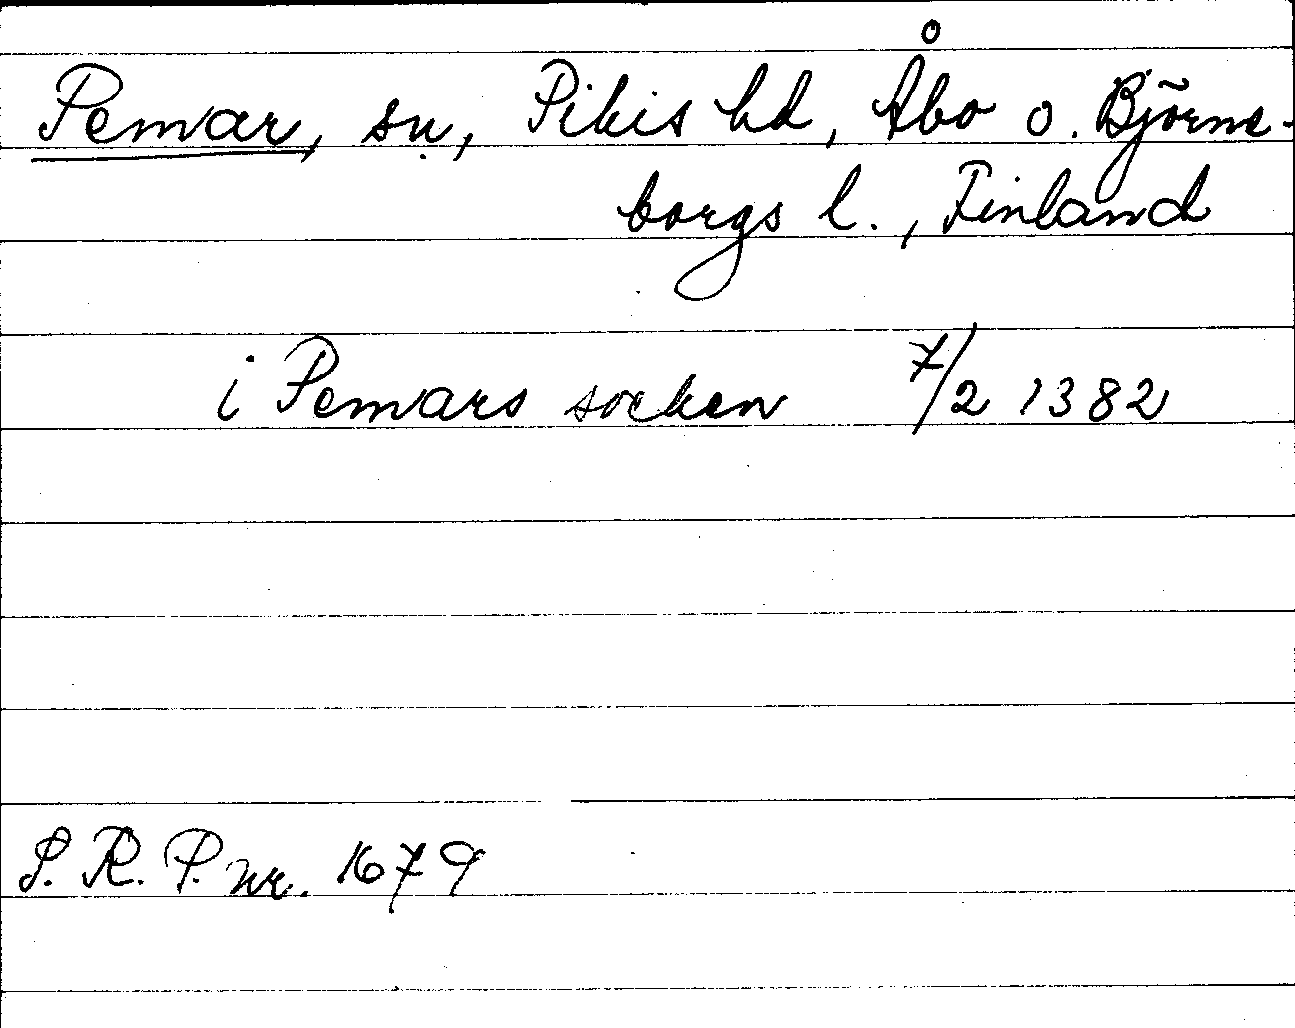 Pemar, sn, Pikis hd, Åbo o. Björne-
borgs l., Finland
i Pemars socken 7/2 1382
S. R. P. nr. 1679